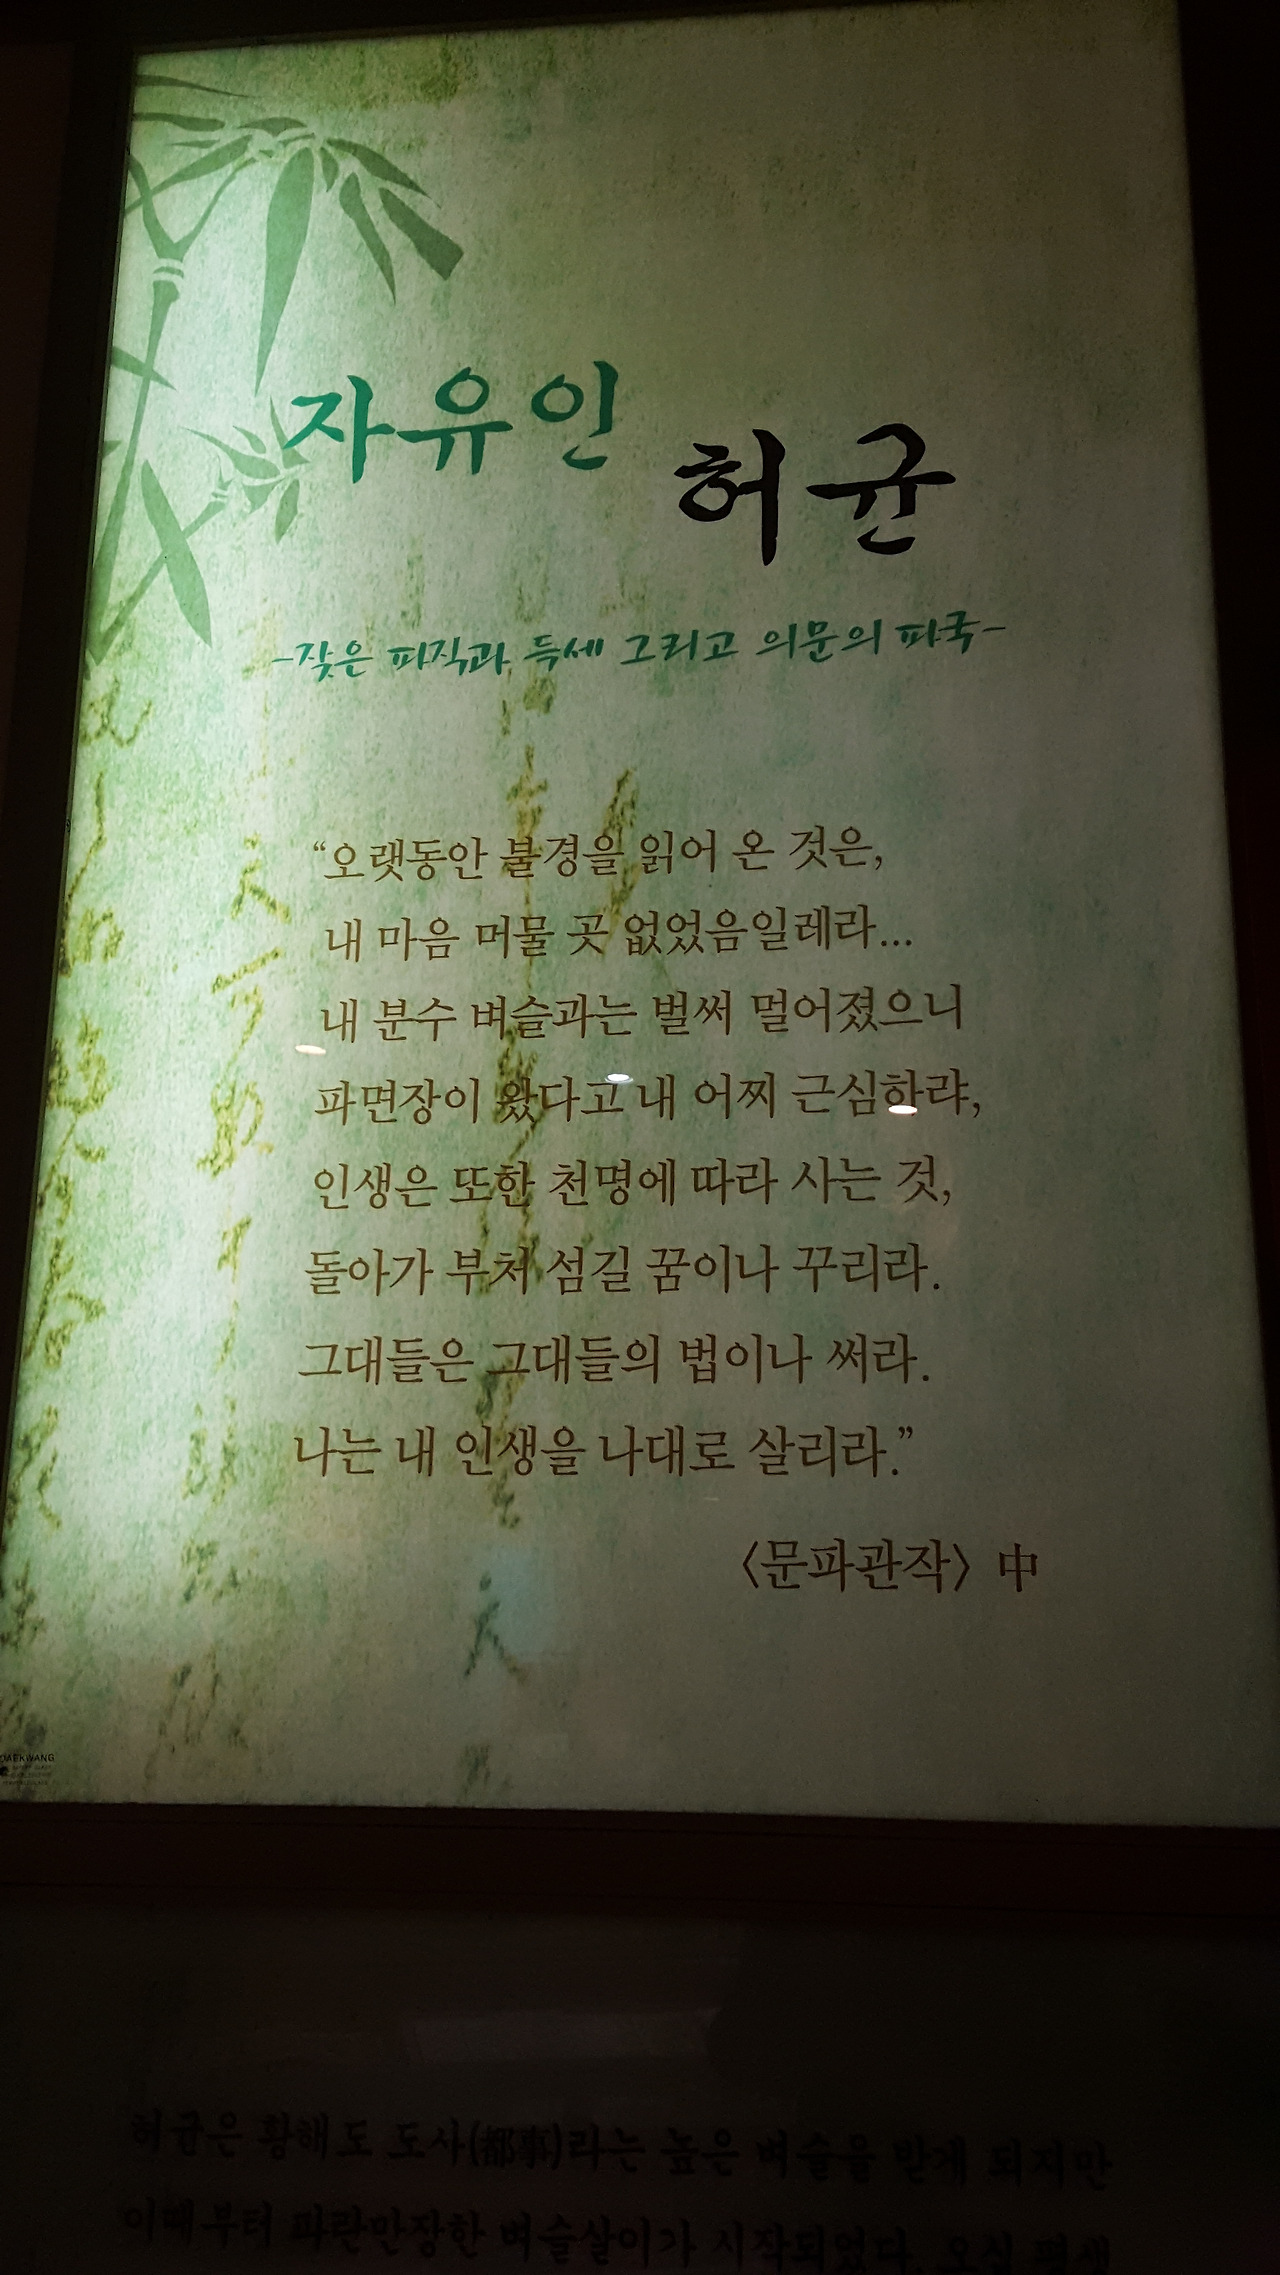 자유인
허균
-잦은 피직과 득세 그리고 의문의 파국-
“오랫동안 불경을 읽어 온 것은,
내 마음 머물 곳 없었음일레라...
내 분수 벼슬과는 벌써 멀어졌으니
파면장이 왔다고 내 어찌 근심하랴,
인생은 또한 천명에 따라 사는 것,
돌아가 부처 섬길 꿈이나 꾸리라.
그대들은 그대들의 법이나 써라.
나는 내 인생을 나대로 살리라.”
〈문파관작〉 中
허균은 황해도 도사(都事)라는 높은 벼슬을 받게 되지만
이때부터 파란만장한 벼슬살이가 시작되었다. 오십 평생